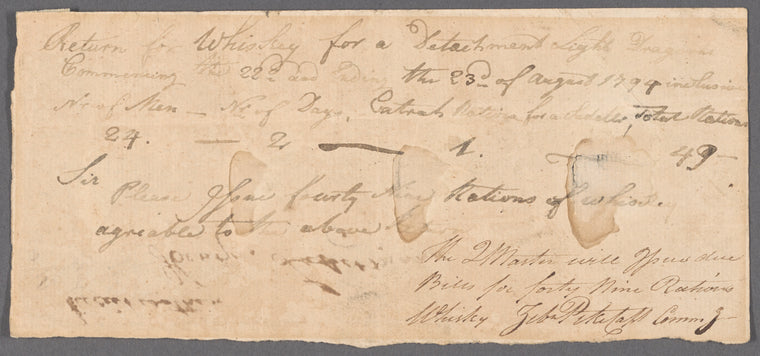 Return for Whiskey for a Detachment Light Dragoons
Commencing the 22d and Ending the 23d of August 1794 inclusive
No of Men — No of Days, Extrah Rations for a Total Rations
24. — 2 — 1. — 49 —
Sir
Please Issue fourty Nine Rations of Whiskey
agreable to the above
The QMaster will Issue due
Bills for forty Nine Rations
Whisky Zebn Pike Capt Commg